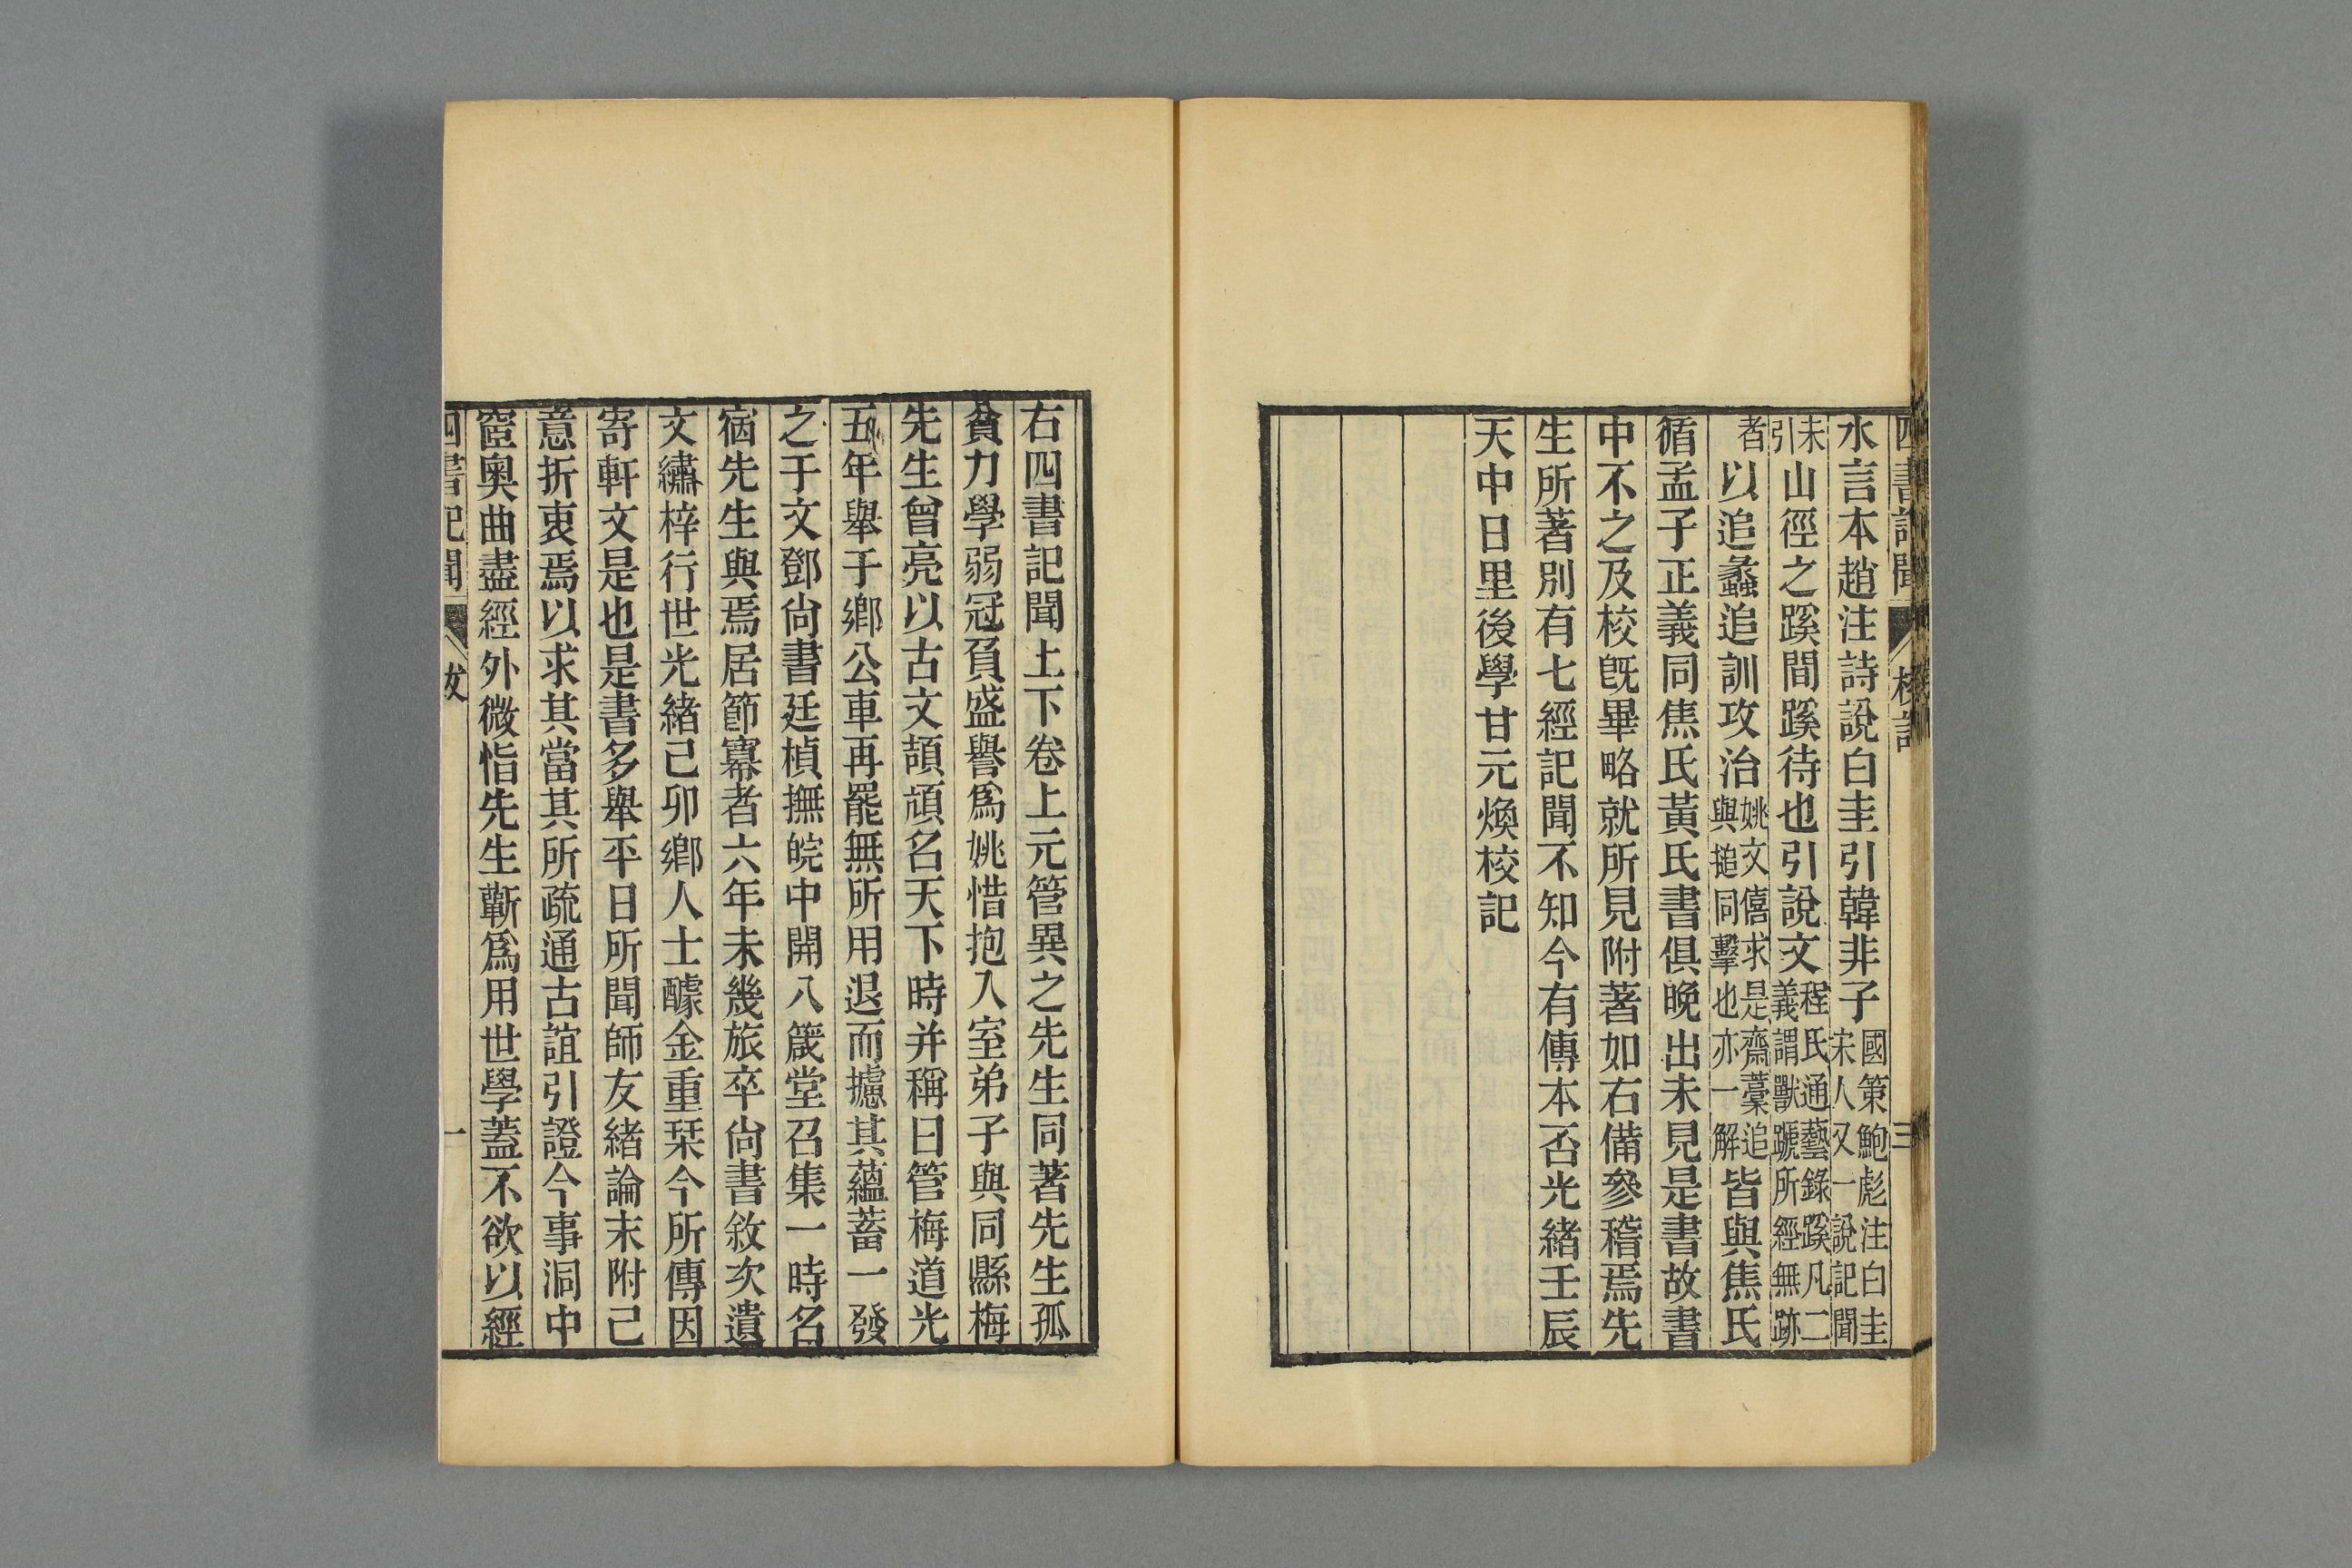 四書記聞 校記 三
水言本趙注詩說白圭引韓非子國策鮑彪注白圭宋人又一說記聞
未引山徑之蹊間蹊待也引說文程氏通藝錄蹊凡二義謂獸蹏所經無跡
者以追蠡追訓攻治姚文僖求是齋藳追與搥同擊也亦一解皆與焦氏
循孟子正義同焦氏黃氏書俱晚出未見是書故書
中不之及校旣畢略就所見附著如右備參稽焉先
生所著別有七經記聞不知今有傳本否光緒壬辰
天中日里後學甘元煥校記
右四書記聞上下卷上元管異之先生同著先生孤
貧力學弱冠負盛譽爲姚惜抱入室弟子與同縣梅
先生曾亮以古文頡頏名天下時并稱曰管梅道光
五年舉于鄉公車再罷無所用退而攄其蘊蓄一發
之于文鄧尙書廷楨撫皖中開八箴堂召集一時名
宿先生與焉居節幕者六年未幾旅卒尙書敘次遺
文繡梓行世光緒己卯鄉人士醵金重栞今所傳因
寄軒文是也是書多舉平日所聞師友緒論末附己
意折衷焉以求其當其所疏通古誼引證今事洞中
窾奥曲盡經外微恉先生蘄爲用世學蓋不欲以經
四書記聞 跋 一